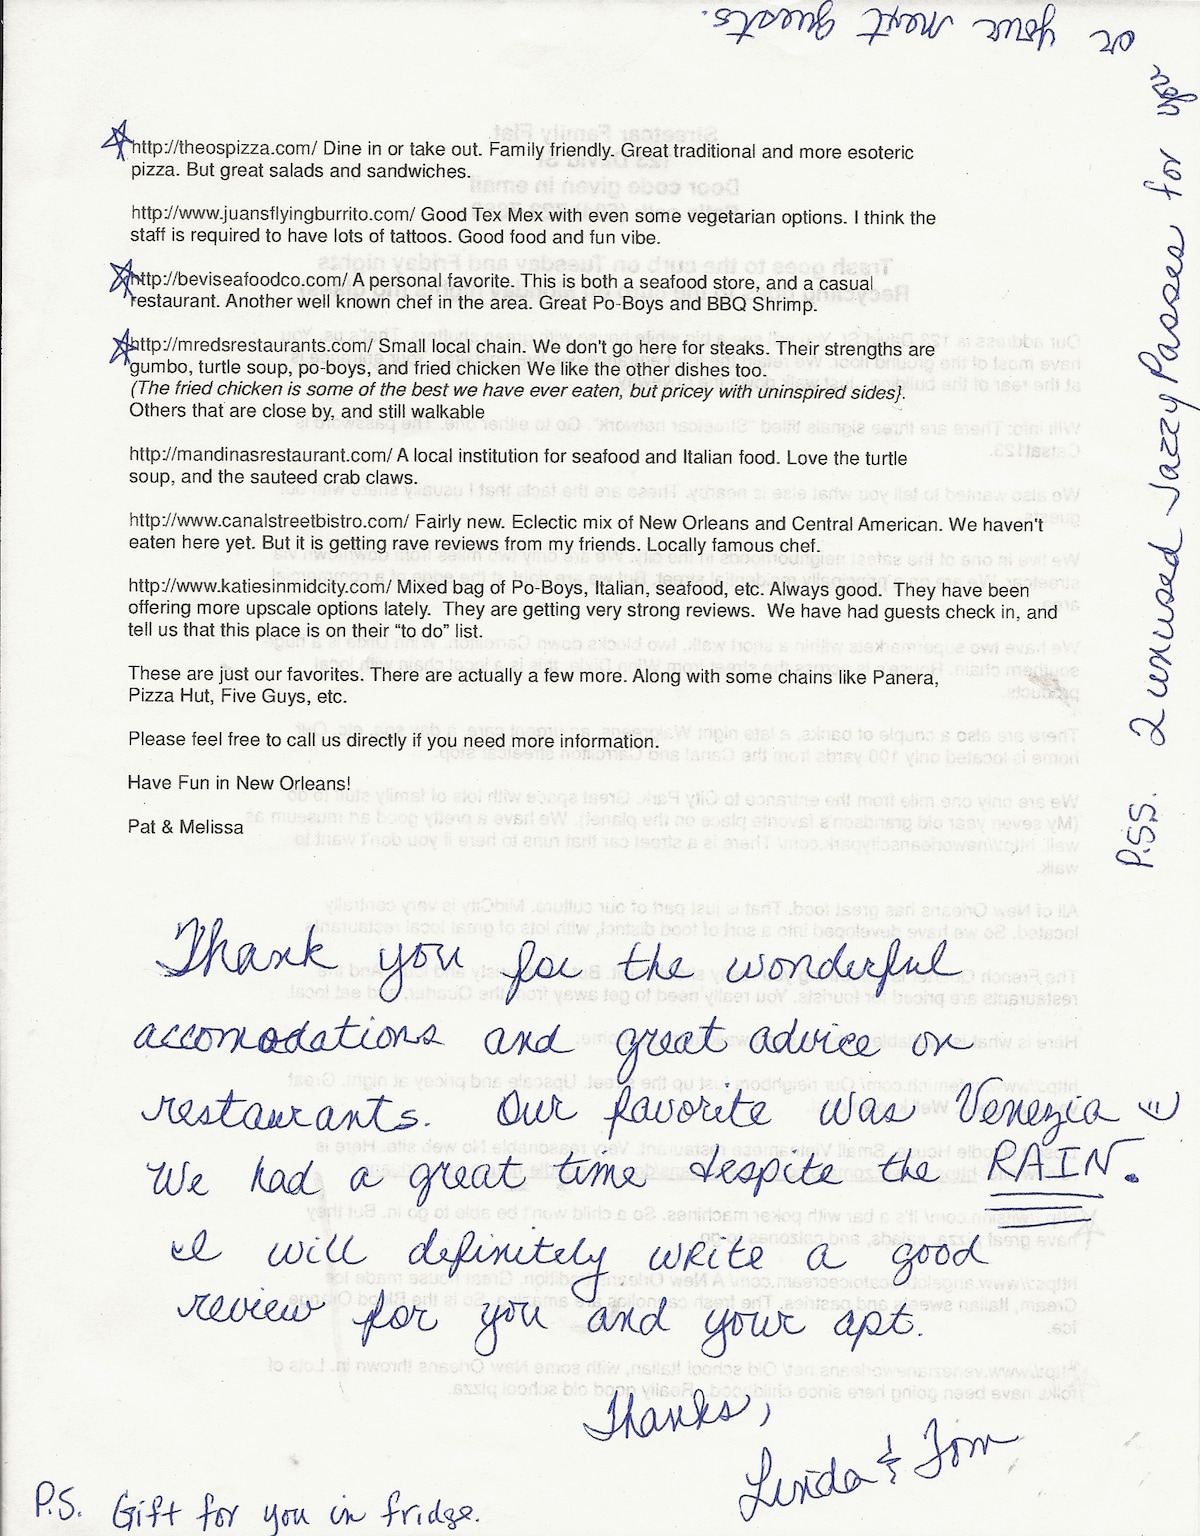 http://theospizza.com/ Dine in or take out. Family friendly. Great traditional and more esoteric
pizza. But great salads and sandwiches.
http://www.juansflyingburrito.com/ Good Tex Mex with even some vegetarian options. I think the
staff is required to have lots of tattoos. Good food and fun vibe.
http://beviseafoodco.com/ A personal favorite. This is both a seafood store, and a casual
restaurant. Another well known chef in the area. Great Po-Boys and BBQ Shrimp.
http://mredsrestaurants.com/ Small local chain. We don't go here for steaks. Their strengths are
gumbo, turtle soup, po-boys, and fried chicken We like the other dishes too.
(The fried chicken is some of the best we have ever eaten, but pricey with uninspired sides}.
Others that are close by, and still walkable
http://mandinasrestaurant.com/ A local institution for seafood and Italian food. Love the turtle
soup, and the sauteed crab claws.
http://www.canalstreetbistro.com/ Fairly new. Eclectic mix of New Orleans and Central American. We haven't
eaten here yet. But it is getting rave reviews from my friends. Locally famous chef.
http://www.katiesinmidcity.com/ Mixed bag of Po-Boys, Italian, seafood, etc. Always good. They have been
offering more upscale options lately. They are getting very strong reviews. We have had guests check in, and
tell us that this place is on their “to do” list.
These are just our favorites. There are actually a few more. Along with some chains like Panera,
Pizza Hut, Five Guys, etc.
Please feel free to call us directly if you need more information.
Have Fun in New Orleans!
Pat & Melissa
Thank you for the wonderful
accomodations and great advice on
restaurants. Our favorite was Venezia
We had a great time despite the RAIN.
I will definitely write a good
review for you and your apt.
Thanks,
Linda & Tom
P.S. Gift for you in fridge.
P.SS. 2 unused Jazzy Passes for you
or your next guests.